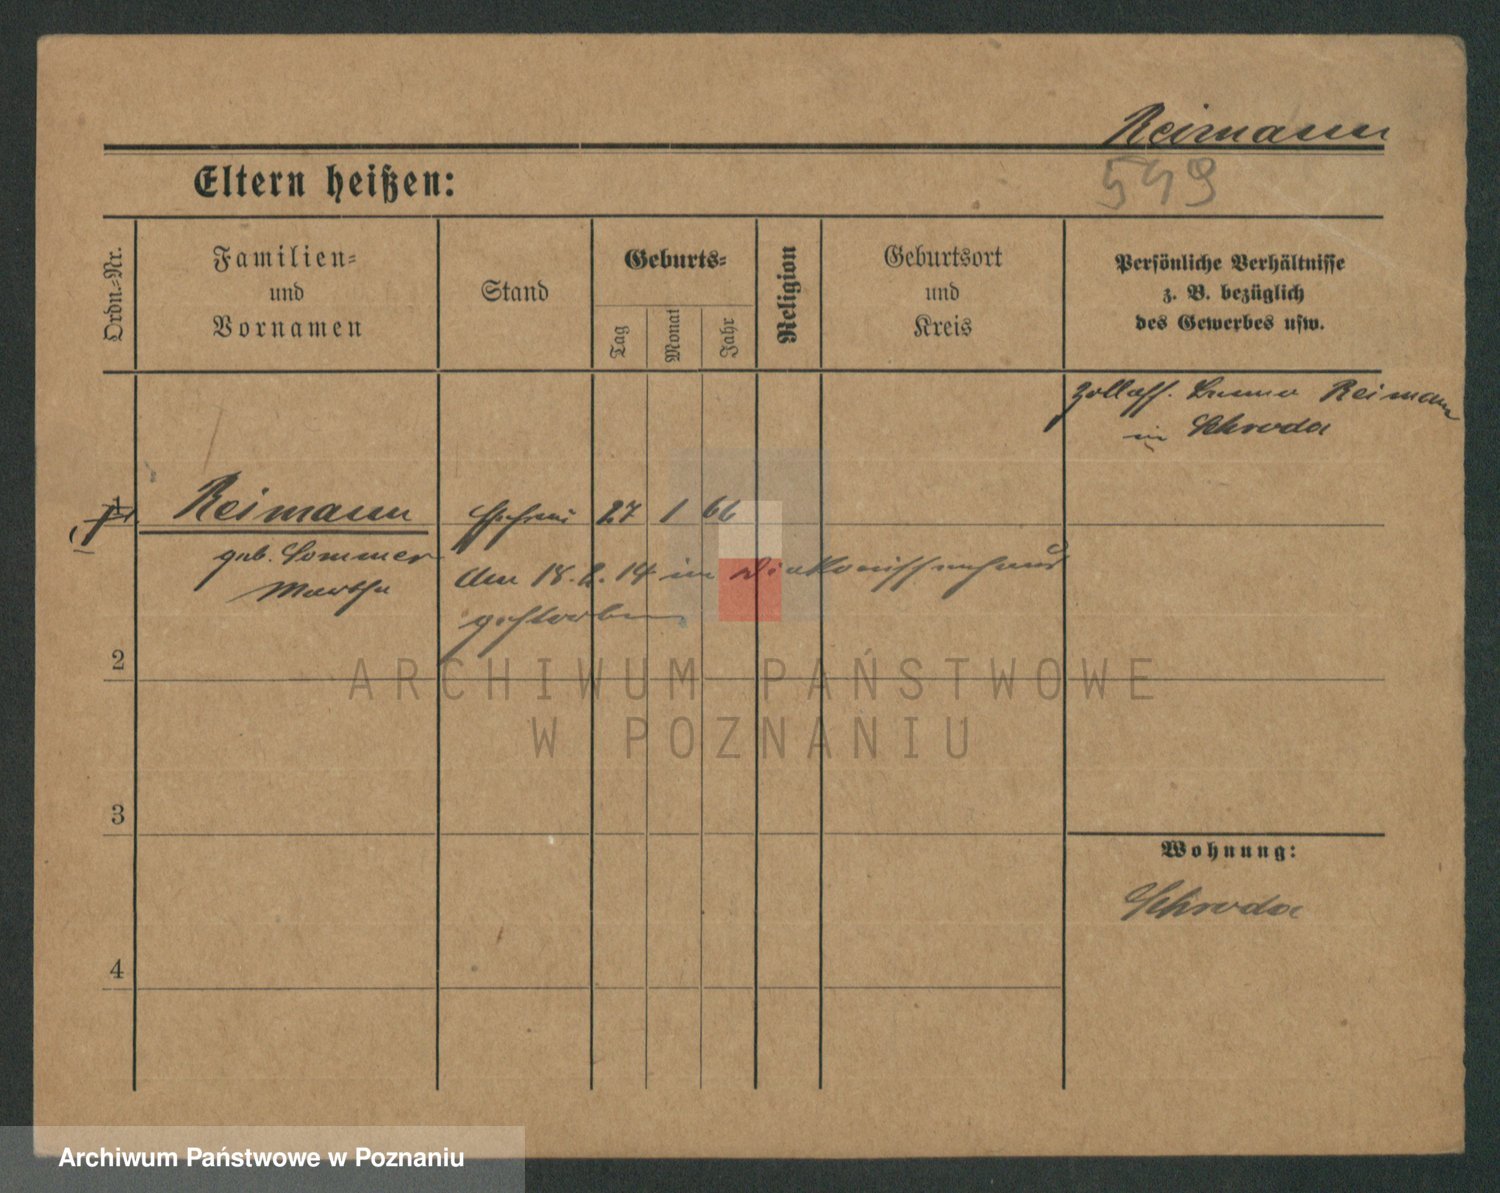 Reimann
Eltern heißen:
549
Ordn.-Nr.
Familien-
und
Vornamen
Stand
Geburts-
Tag
Monat
Jahr
Religion
Geburtsort
und
Kreis
Persönliche Verhältnisse
z. B. bezüglich
des Gewerbes usw.
Zollass. Reimann
in Schroda
1
Reimann
Ehefrau 27 1 66
geb. Sommer
Martha
den 18.2.14 im Diakonissenhaus
gestorben
2
ARCHIWUM PAŃSTWOWE
W POZNANIU
3
Wohnung:
Schroda
4
Archiwum Państwowe w Poznaniu